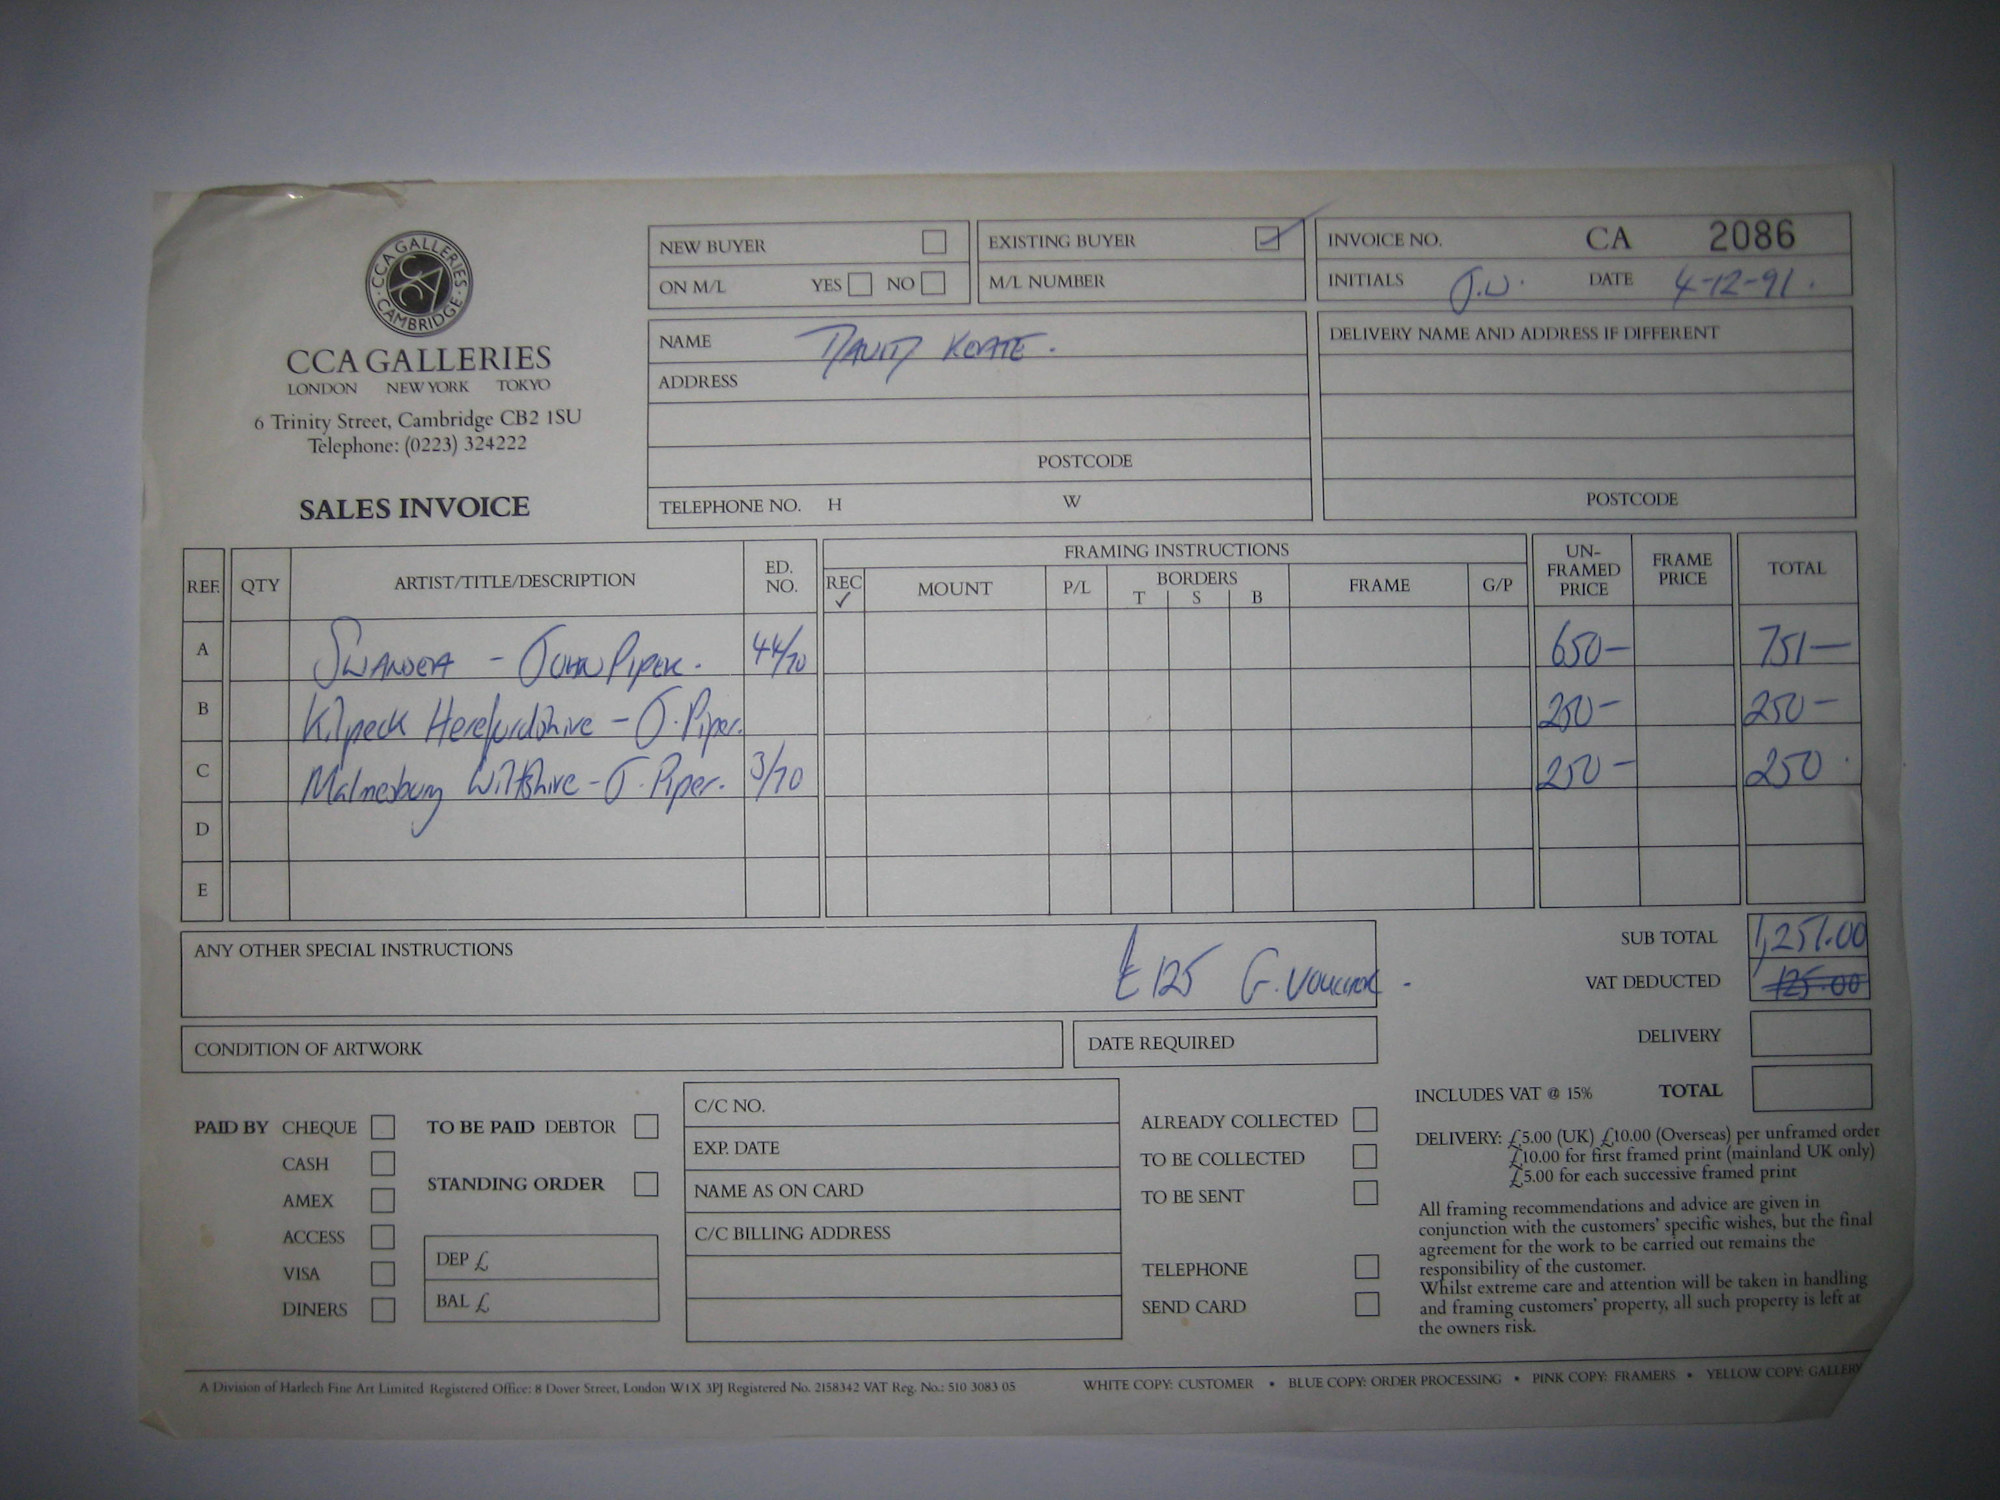 CCA GALLERIES · CAMBRIDGE ·
CCA
CCA GALLERIES
LONDON NEW YORK TOKYO
6 Trinity Street, Cambridge CB2 1SU
Telephone: (0223) 324222
SALES INVOICE
NEW BUYER
ON M/L YES NO
EXISTING BUYER ✓
M/L NUMBER
INVOICE NO. CA 2086
INITIALS J.W. DATE 4-12-91.
NAME DAVID
ADDRESS
POSTCODE
TELEPHONE NO. H W
DELIVERY NAME AND ADDRESS IF DIFFERENT
POSTCODE
REF. QTY ARTIST/TITLE/DESCRIPTION ED. NO. FRAMING INSTRUCTIONS UN-FRAMED PRICE FRAME PRICE TOTAL
REC ✓ MOUNT P/L BORDERS T S B FRAME G/P
A - JOHN PIPER. 44/70 650- 751-
B Kilpeck Herefordshire - J. Piper. 250- 250-
C Malmesbury Wiltshire - J. Piper. 3/70 250- 250.
D
E
ANY OTHER SPECIAL INSTRUCTIONS
£125 G. VOUCHER.
SUB TOTAL 1,251.00
VAT DEDUCTED 125.00
CONDITION OF ARTWORK
DATE REQUIRED
DELIVERY
INCLUDES VAT @ 15% TOTAL
PAID BY CHEQUE
CASH
AMEX
ACCESS
VISA
DINERS
TO BE PAID DEBTOR
STANDING ORDER
DEP £
BAL £
C/C NO.
EXP. DATE
NAME AS ON CARD
C/C BILLING ADDRESS
ALREADY COLLECTED
TO BE COLLECTED
TO BE SENT
TELEPHONE
SEND CARD
DELIVERY: £5.00 (UK) £10.00 (Overseas) per unframed order
£10.00 for first framed print (mainland UK only)
£5.00 for each successive framed print
All framing recommendations and advice are given in
conjunction with the customers' specific wishes, but the final
agreement for the work to be carried out remains the
responsibility of the customer.
Whilst extreme care and attention will be taken in handling
and framing customers' property, all such property is left at
the owners risk.
A Division of Harlech Fine Art Limited Registered Office: 8 Dover Street, London W1X 3PJ Registered No. 2158342 VAT Reg. No.: 510 3083 05
WHITE COPY: CUSTOMER • BLUE COPY: ORDER PROCESSING • PINK COPY: FRAMERS • YELLOW COPY: GALLERY